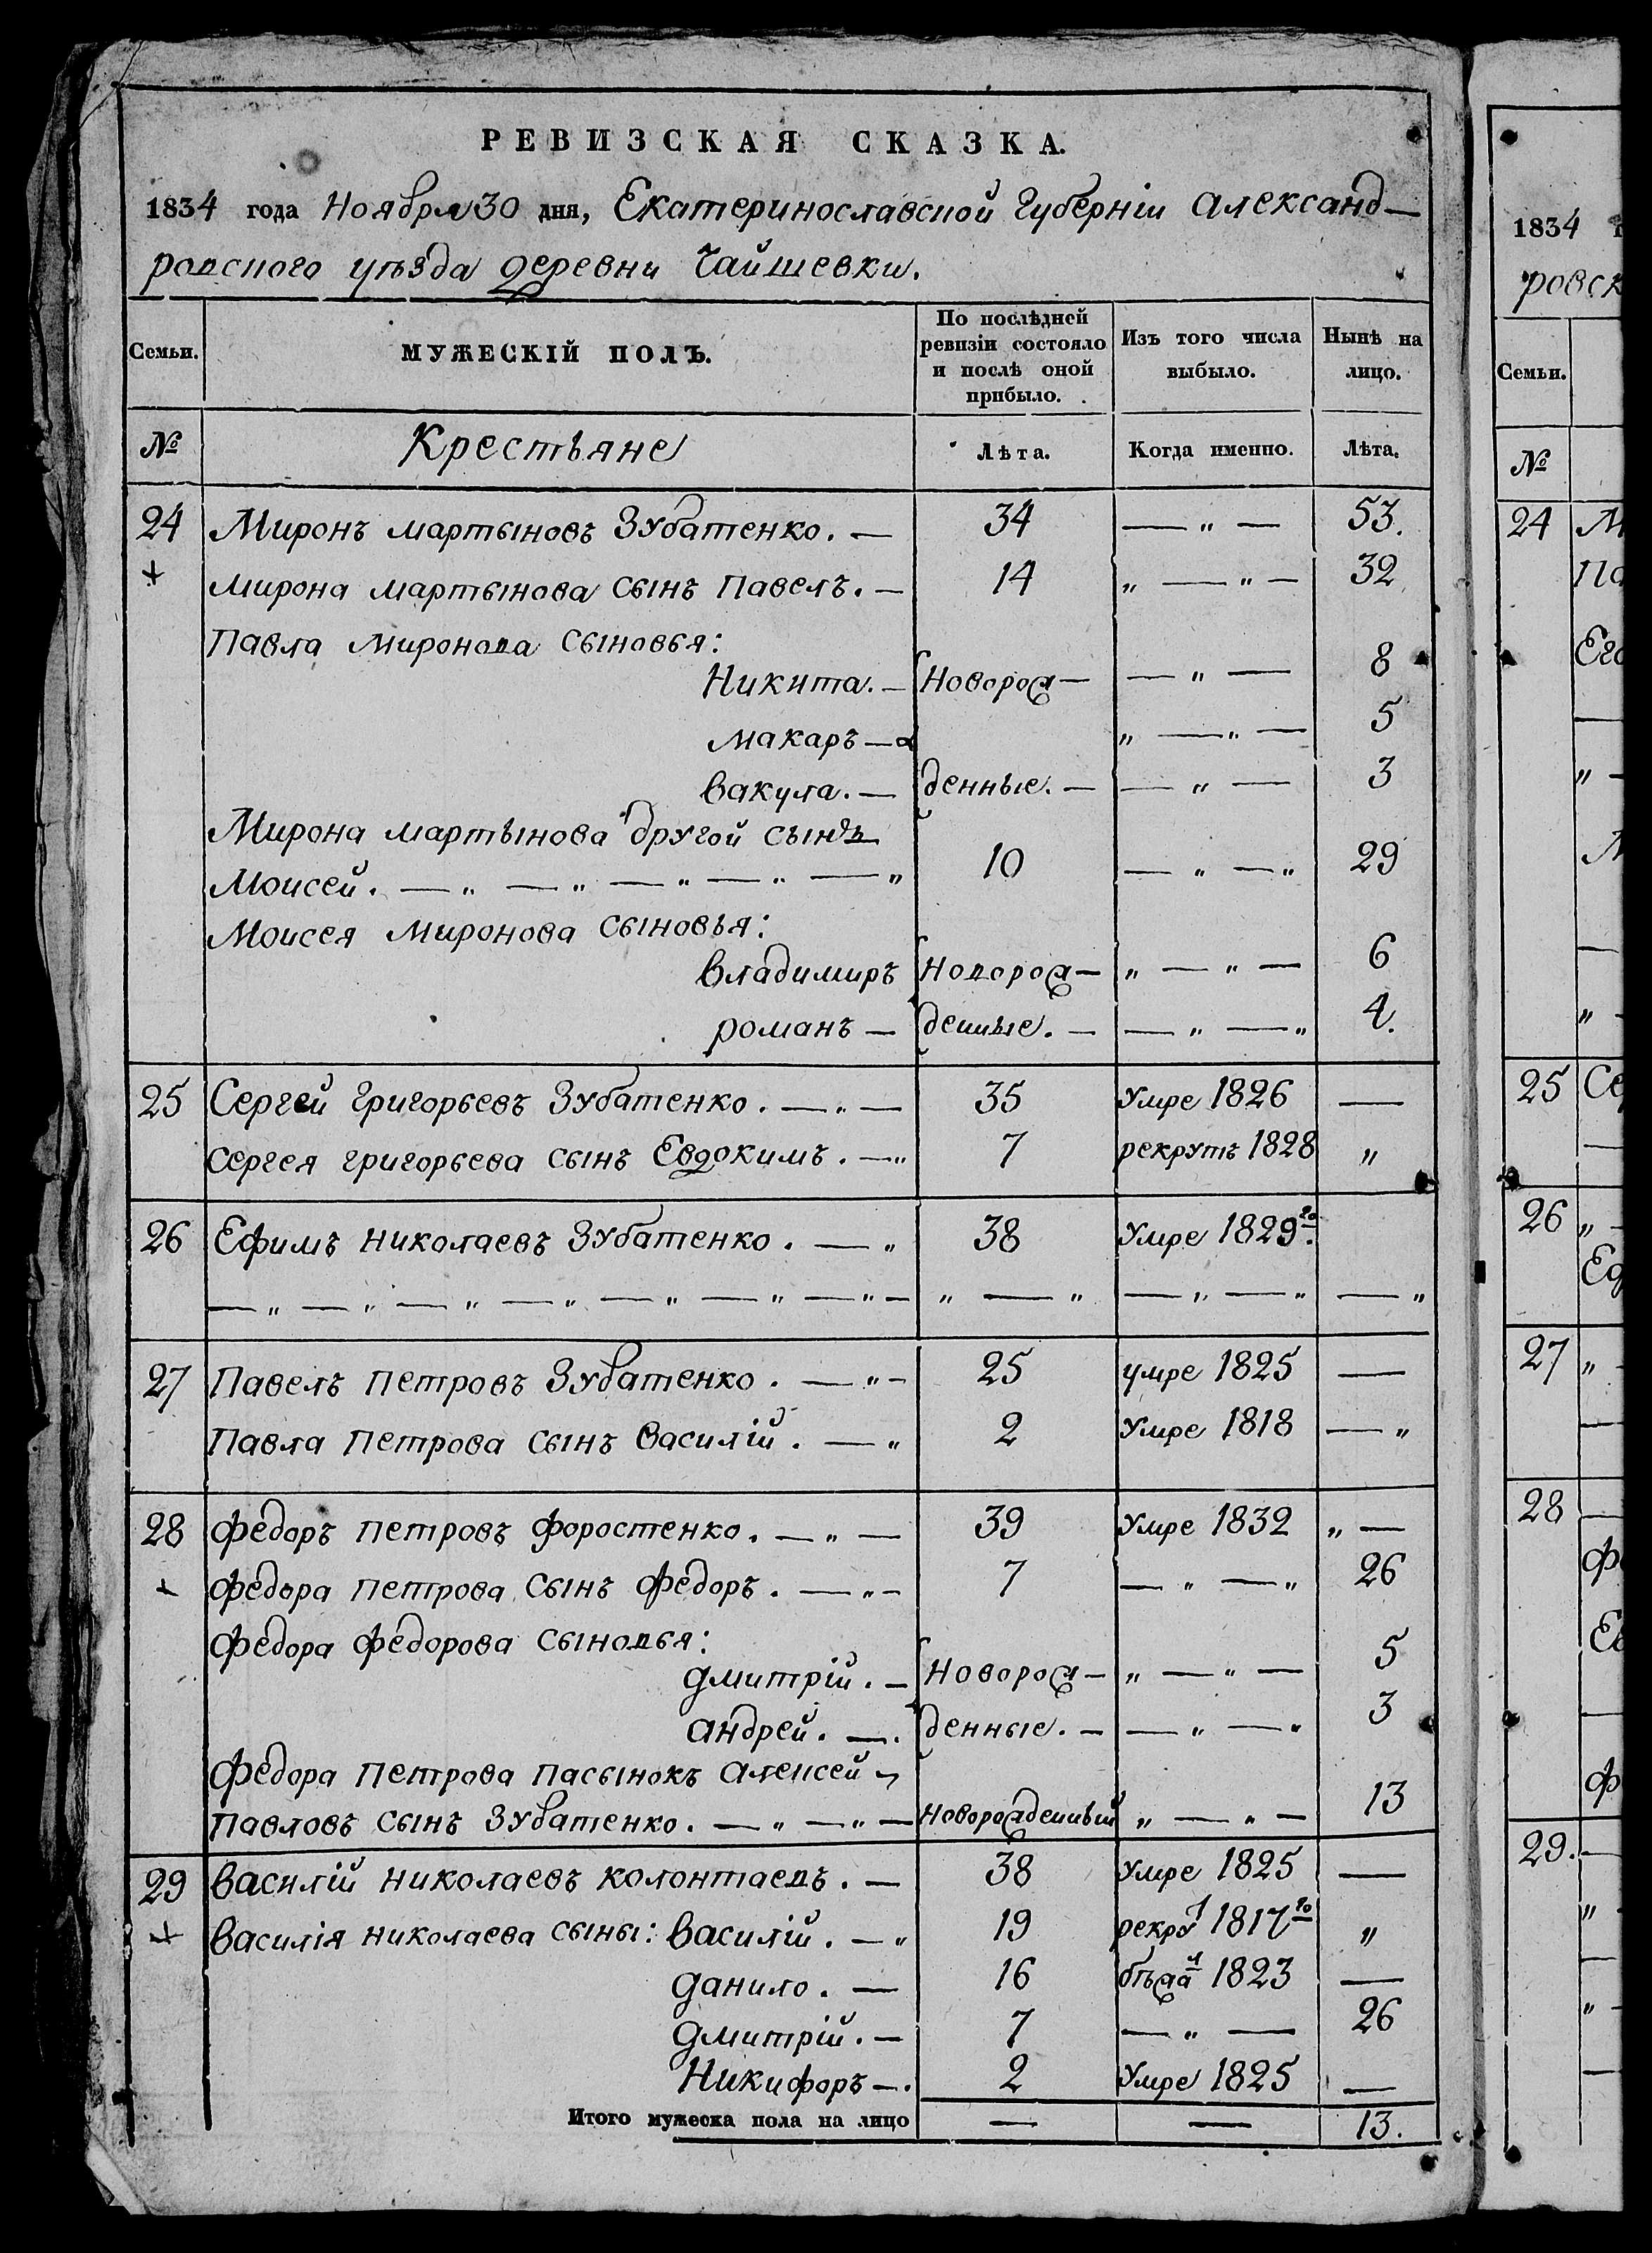 РЕВИЗСКАЯ СКАЗКА.
1834 года Ноября 30 дня, Екатеринославской Губерніи Александ-
ровского уѣзда деревни Чайшевки.
Семьи. МУЖЕСКІЙ ПОЛЪ. По послѣдней ревизіи состояло и послѣ оной прибыло. Изъ того числа выбыло. Нынѣ на лицо.
№ Крестьяне Лѣта. Когда именно. Лѣта.
24 Миронъ мартыновъ Зубатенко. — 34 — „ — 53.
+ мирона мартынова сынъ павелъ. — 14 „ — „ — 32
Павла миронова сыновья:
Никита. — Новорож— — „ — 8
макаръ — „ — „ — 5
вакула. — денные. — — „ — 3
Мирона мартынова другой сынъ
Моисей. — „ — „ — „ — „ — „ 10 — „ — „ 29
Моисея миронова сыновья:
владимиръ новорож— „ — „ — 6
романъ — денные. — — „ — „ 4.
25 Сергей григорьевъ Зубатенко. — „ — 35 Умре 1826 —
сергея григорьева сынъ Евдокимъ. — „ 7 рекрутъ 1828 „
26 Ефимъ николаевъ Зубатенко. — „ 38 Умре 1829го.
— „ — „ — „ — „ — „ — „ — „ — „ — „ — „ — „ — „
27 Павелъ петровъ Зубатенко. — „ — 25 умре 1825 —
Павла петрова сынъ василій. — „ 2 Умре 1818 — „
28 федоръ петровъ форостенко. — „ — 39 Умре 1832 „ —
+ федора петрова сынъ федоръ. — „ — 7 — „ — „ 26
федора федорова сыновья:
дмитрій. — новорож— „ — „ — 5
андрей. — . денные. — — „ — „ 3
федора петрова пасынокъ алексей
павловъ сынъ Зубатенко. — „ — „ — новорожденный „ — „ — 13
29 василій николаевъ колонтаевъ. — 38 Умре 1825 —
+ василія николаева сыны: василій. — „ 19 рекрут 1817го „
данило. — 16 бѣжал 1823 —
дмитрій. — 7 — „ — 26
Никифоръ — . 2 Умре 1825 —
Итого мужеска пола на лицо — — 13.
1834
ровск
Семьи.
№
24 М
Па
Его
„ —
М
„ —
25 Се
26 „ —
Еф
27 „ —
28 —
фе
Ев
ф
29. —
„ —
„ —